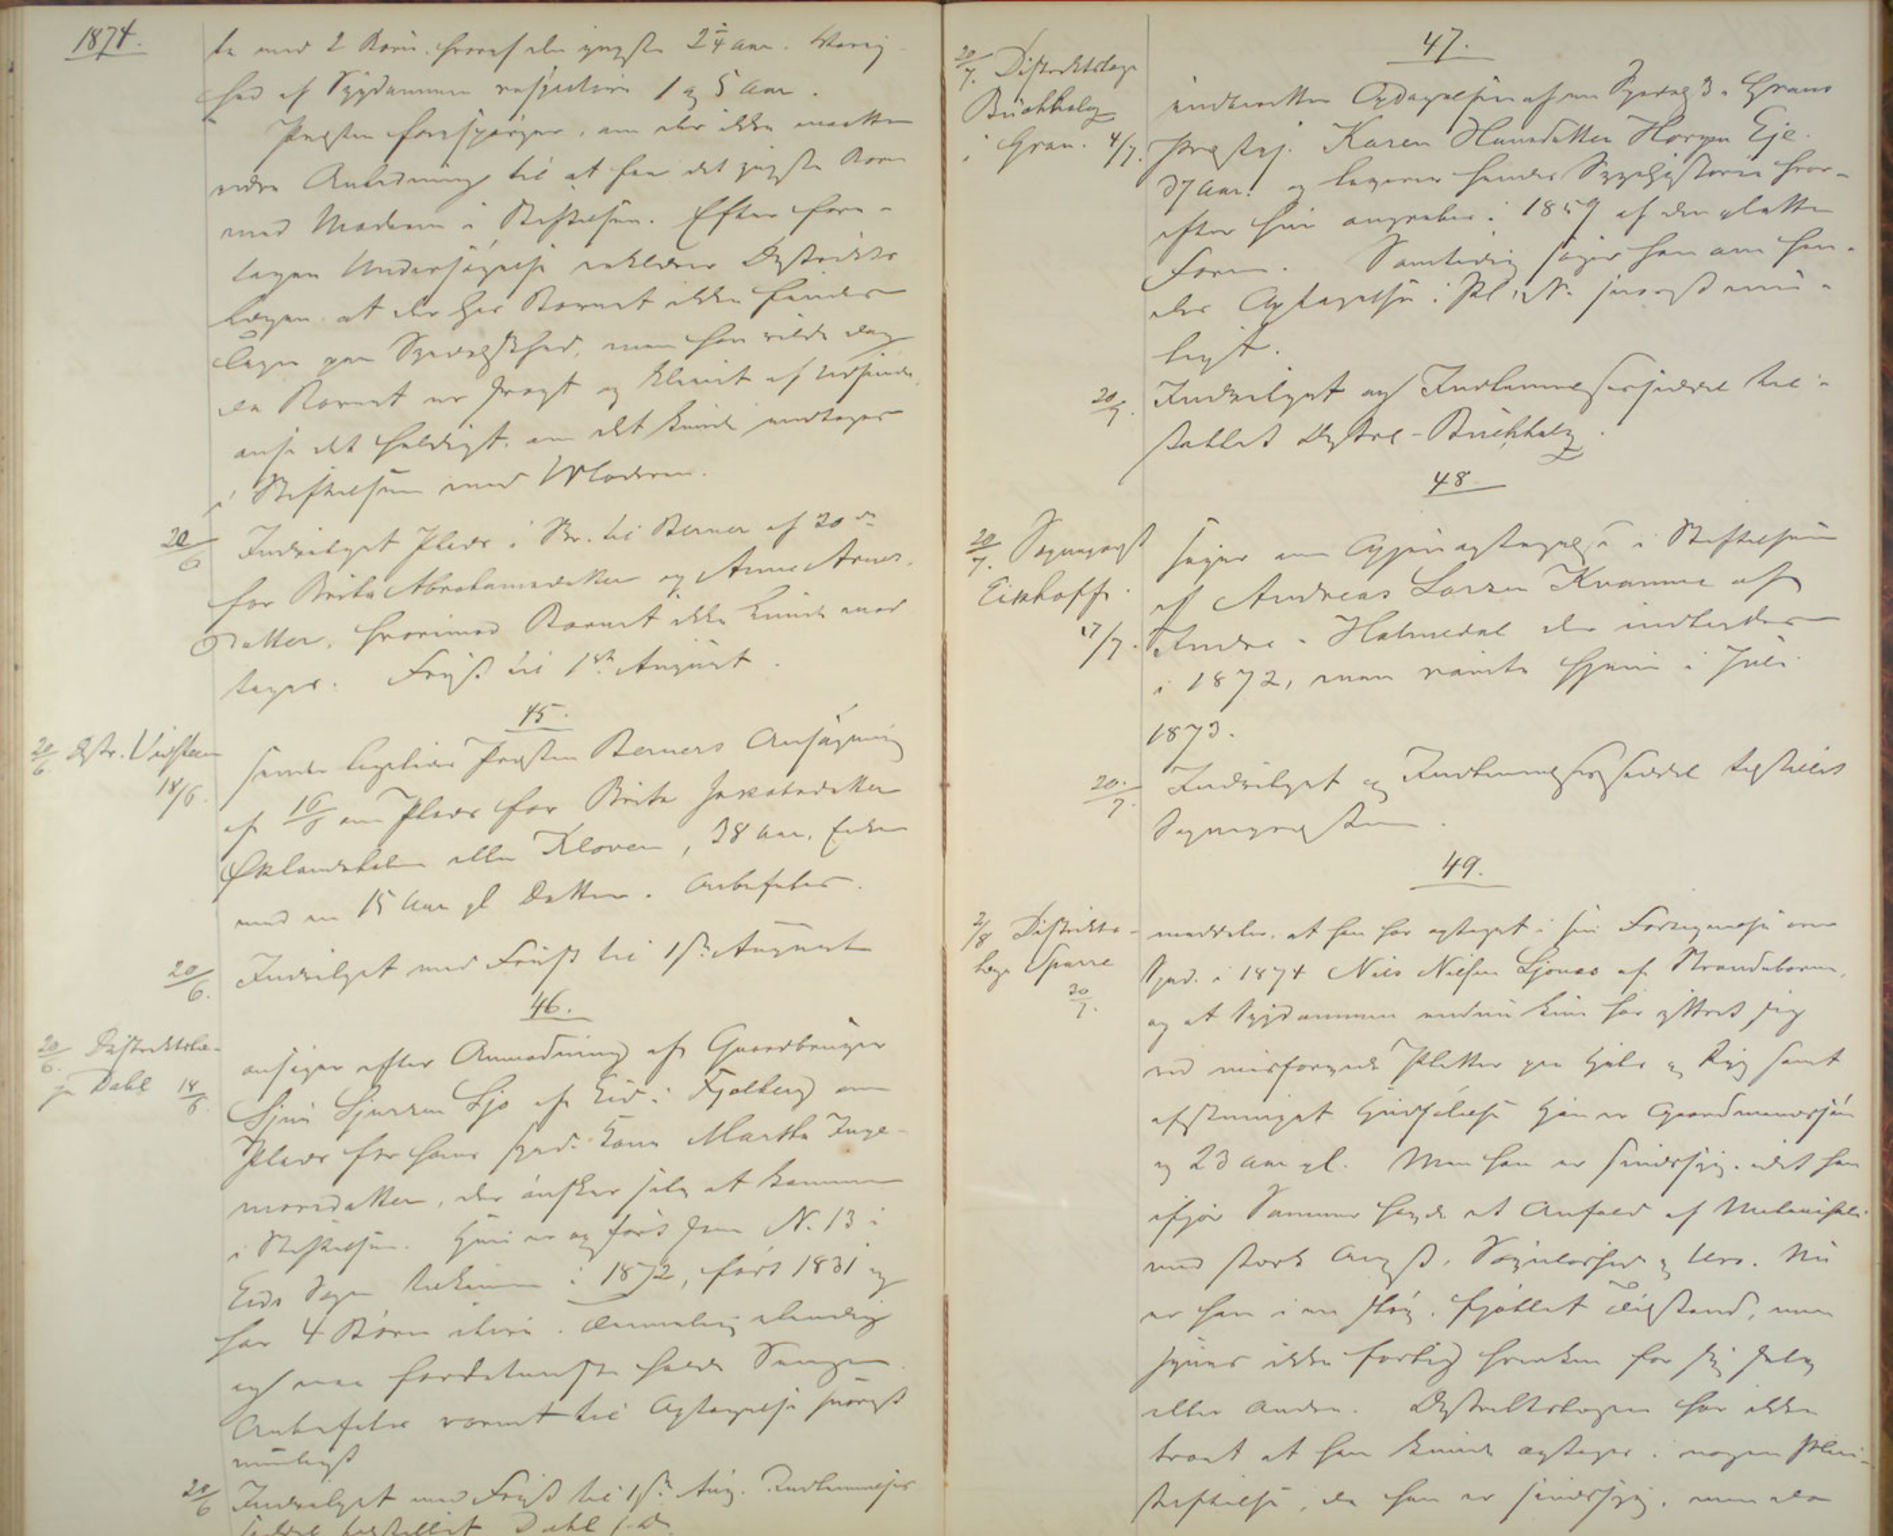 1874.
te med 2 Börn. hvoraf den yngste 2 1/4 aar. Varig-
hed af Sygdommen respective 1 og 5 Aar.
Præsten forespørger, om der ikke maatte
være Anledning til at faa det yngste Barn
med Moderen i Stiftelsen. Efter fore-
tagen Undersøgelse erklærer Distrikts
lægen at der hos Barnet ikke findes
Tegn paa Spedalskhed, men han vilde dog
da Barnet er svagt og kleint af Udseende
anse det heldigst, om det kunde modtages
i Stiftelsen med Moderen.
20/6 Indvilget Plads i St. til Berner af 20de
for Brita Abrahamsdatter og Anne Arnes-
Datter, hvorimod Barnet ikke kunde mod
tages. Frist til 1ste August.
45.
20/6 Distr. Vidsteen
18/6.
sender ligeledes Præsten Berners Ansøgning
af 16/6 om Plads for Brita Jakobsdatter
Øklandshelen eller Kloven, 38 Aar, Enke
med en 15 Aar gl Datter. Anbefales.
20/6. Indvilget med Frist til 1ste August
46.
20/6. Distriktslæ-
ge Dahl 18/6
ansøger efter Anmodning af Gaardbruger
Sjur Sjursen Ljo af Eid i Fjelberg om
Plads for hans sped. Kone Martha Inge-
morsdatter, der ønsker selv at komme
i Stiftelsen. Hun er opført som N. 13 i
Eids Sogn tilkommen i 1872, født 1831 og
har 4 Børn ilive. Temmelig elendig
og maa fordetmeste holde Sengen.
Anbefales varmt til Optagelse snarest
muligst
20/6 Indvilget med Frist til 1ste Aug. Indlemmelses
seddel tilstillet Dahl s. D.
47.
20/7. Distriktslæge
Buchholz
i Gran. 4/7.
indberetter Opdagelsen af en Spedalsk i Grans
Præstegj. Karen Hansdatter Horgen Eje.
37 Aar. og leverer hendes Sygehistorie hvor-
efter hun angrebes i 1859 af den glatte
Form. Samtidig søger han om hen-
des Optagelse i Pl. St. snarest mu-
ligt.
20/7. Indvilget og Indlemmelsesseddel til-
stillet Distrl-Buchholz.
48
20/7. Sognepræst
Eikhoff.
17/7.
søger om Gjenoptagelse i Stiftelsen
af Andreas Larsen Kvamme af
Indre-Holmedal der indlagdes
i 1872, men reiste hjem i Juli
1873.
20./7. Indvilget og Indlemmelsesseddel tilstillet
Sognepræsten.
49.
2/8 Distrikts-
læge Sparre
30/7.
meddeler, at han har optaget i sin Fortegnelse over
Sped. i 1874 Nils Nilsen Ljones af Strandebarm,
og at Sygdommen endnu kun har yttret sig
ved misfarvede Pletter paa Hals og Ryg samt
afstumpet Hudfølelse Han er Gaardmandssøn
og 23 aar gl. Men han er sindssyg. idet han
ifjor Sommer havde et Anfald af Melancholi
med stærk Angst, Søvnløshed og Uro. Nu
er han i en sløv. fjollet Tilstand, men
synes ikke farlig hverken for sig selv
eller Andre. Distriktslægen har ikke
troet at han kunde optages i nogen Plei-
stiftelse, da han er sindssyg, men da